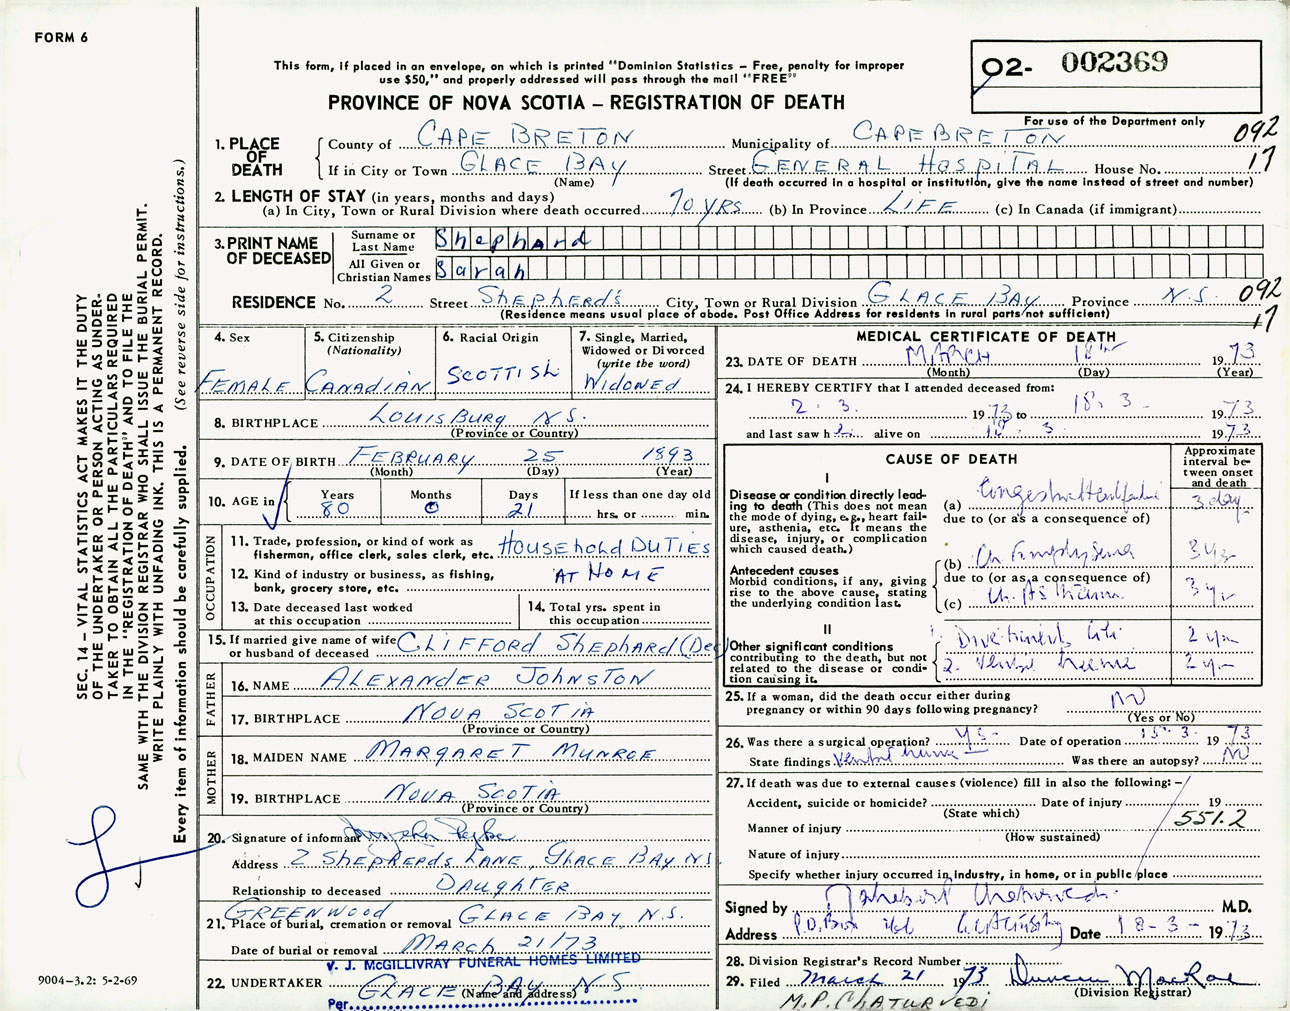 FORM 6
This form, if placed in an envelope, on which is printed "Dominion Statistics – Free, penalty for improper
use $50," and properly addressed will pass through the mail "FREE"
PROVINCE OF NOVA SCOTIA – REGISTRATION OF DEATH
02- 002369
For use of the Department only
092
17
1. PLACE OF DEATH
County of CAPE BRETON Municipality of CAPE BRETON
If in City or Town GLACE BAY Street GENERAL HOSPITAL House No.
(Name) (If death occurred in a hospital or institution, give the name instead of street and number)
2. LENGTH OF STAY (in years, months and days)
(a) In City, Town or Rural Division where death occurred 70 YRS (b) In Province LIFE (c) In Canada (if immigrant)
3. PRINT NAME OF DECEASED
Surname or Last Name Shephard
All Given or Christian Names Sarah
RESIDENCE No. 2 Street SHEPHERD'S City, Town or Rural Division GLACE BAY Province N.S. 092
(Residence means usual place of abode. Post Office Address for residents in rural parts not sufficient) 17
4. Sex
FEMALE
5. Citizenship
(Nationality)
CANADIAN
6. Racial Origin
SCOTTISH
7. Single, Married,
Widowed or Divorced
(write the word)
WIDOWED
8. BIRTHPLACE LOUISBURG N.S.
(Province or Country)
9. DATE OF BIRTH FEBRUARY 25 1893
(Month) (Day) (Year)
10. AGE in
Years Months Days If less than one day old
80 0 21 hrs. or min.
OCCUPATION
11. Trade, profession, or kind of work as
fisherman, office clerk, sales clerk, etc. HOUSEHOLD DUTIES
12. Kind of industry or business, as fishing,
bank, grocery store, etc. AT HOME
13. Date deceased last worked
at this occupation
14. Total yrs. spent in
this occupation
15. If married give name of wife
or husband of deceased CLIFFORD SHEPHARD (Dec)
FATHER
16. NAME ALEXANDER JOHNSTON
17. BIRTHPLACE NOVA SCOTIA
(Province or Country)
MOTHER
18. MAIDEN NAME MARGARET MUNROE
19. BIRTHPLACE NOVA SCOTIA
(Province or Country)
20. Signature of informant
Address 2 SHEPHERDS LANE, GLACE BAY NS
Relationship to deceased DAUGHTER
GREENWOOD
21. Place of burial, cremation or removal GLACE BAY N.S.
Date of burial or removal MARCH 21/73
V. J. McGILLIVRAY FUNERAL HOMES LIMITED
22. UNDERTAKER GLACE BAY N S
(Name and address)
Per
MEDICAL CERTIFICATE OF DEATH
23. DATE OF DEATH MARCH 18th 1973
(Month) (Day) (Year)
24. I HEREBY CERTIFY that I attended deceased from:
2. 3. 1973 to 18. 3. 1973
and last saw h alive on 18. 3 1973
CAUSE OF DEATH
Approximate
interval be-
tween onset
and death
I
Disease or condition directly lead-
ing to death (This does not mean
the mode of dying, e.g., heart fail-
ure, asthenia, etc. It means the
disease, injury, or complication
which caused death.)
(a) Congestive Heart failure 3 day
due to (or as a consequence of)
Antecedent causes
Morbid conditions, if any, giving
rise to the above cause, stating
the underlying condition last.
(b) Ch Emphysema 3 yr
due to (or as a consequence of)
(c) Ch. Asthma 3 yr
II
Other significant conditions
contributing to the death, but not
related to the disease or condi-
tion causing it.
1. 2 yr
2. Ventral hernia 2 yr
25. If a woman, did the death occur either during
pregnancy or within 90 days following pregnancy? No
(Yes or No)
26. Was there a surgical operation? Yes Date of operation 15. 3. 1973
State findings Ventral hernia Was there an autopsy? No
27. If death was due to external causes (violence) fill in also the following: –
Accident, suicide or homicide? Date of injury 19
(State which)
Manner of injury 551.2
(How sustained)
Nature of injury
Specify whether injury occurred in industry, in home, or in public place
Signed by M.D.
Address P.O. Box Date 18-3-1973
28. Division Registrar's Record Number
29. Filed March 21 1973 Duncan MacRae
(Division Registrar)
M.P. CHATURVEDI
SEC. 14 – VITAL STATISTICS ACT MAKES IT THE DUTY
OF THE UNDERTAKER OR PERSON ACTING AS UNDER-
TAKER TO OBTAIN ALL THE PARTICULARS REQUIRED
IN THE "REGISTRATION OF DEATH" AND TO FILE THE
SAME WITH THE DIVISION REGISTRAR WHO SHALL ISSUE THE BURIAL PERMIT.
WRITE PLAINLY WITH UNFADING INK. THIS IS A PERMANENT RECORD.
Every item of information should be carefully supplied. (See reverse side for instructions.)
9004-3.2: 5-2-69